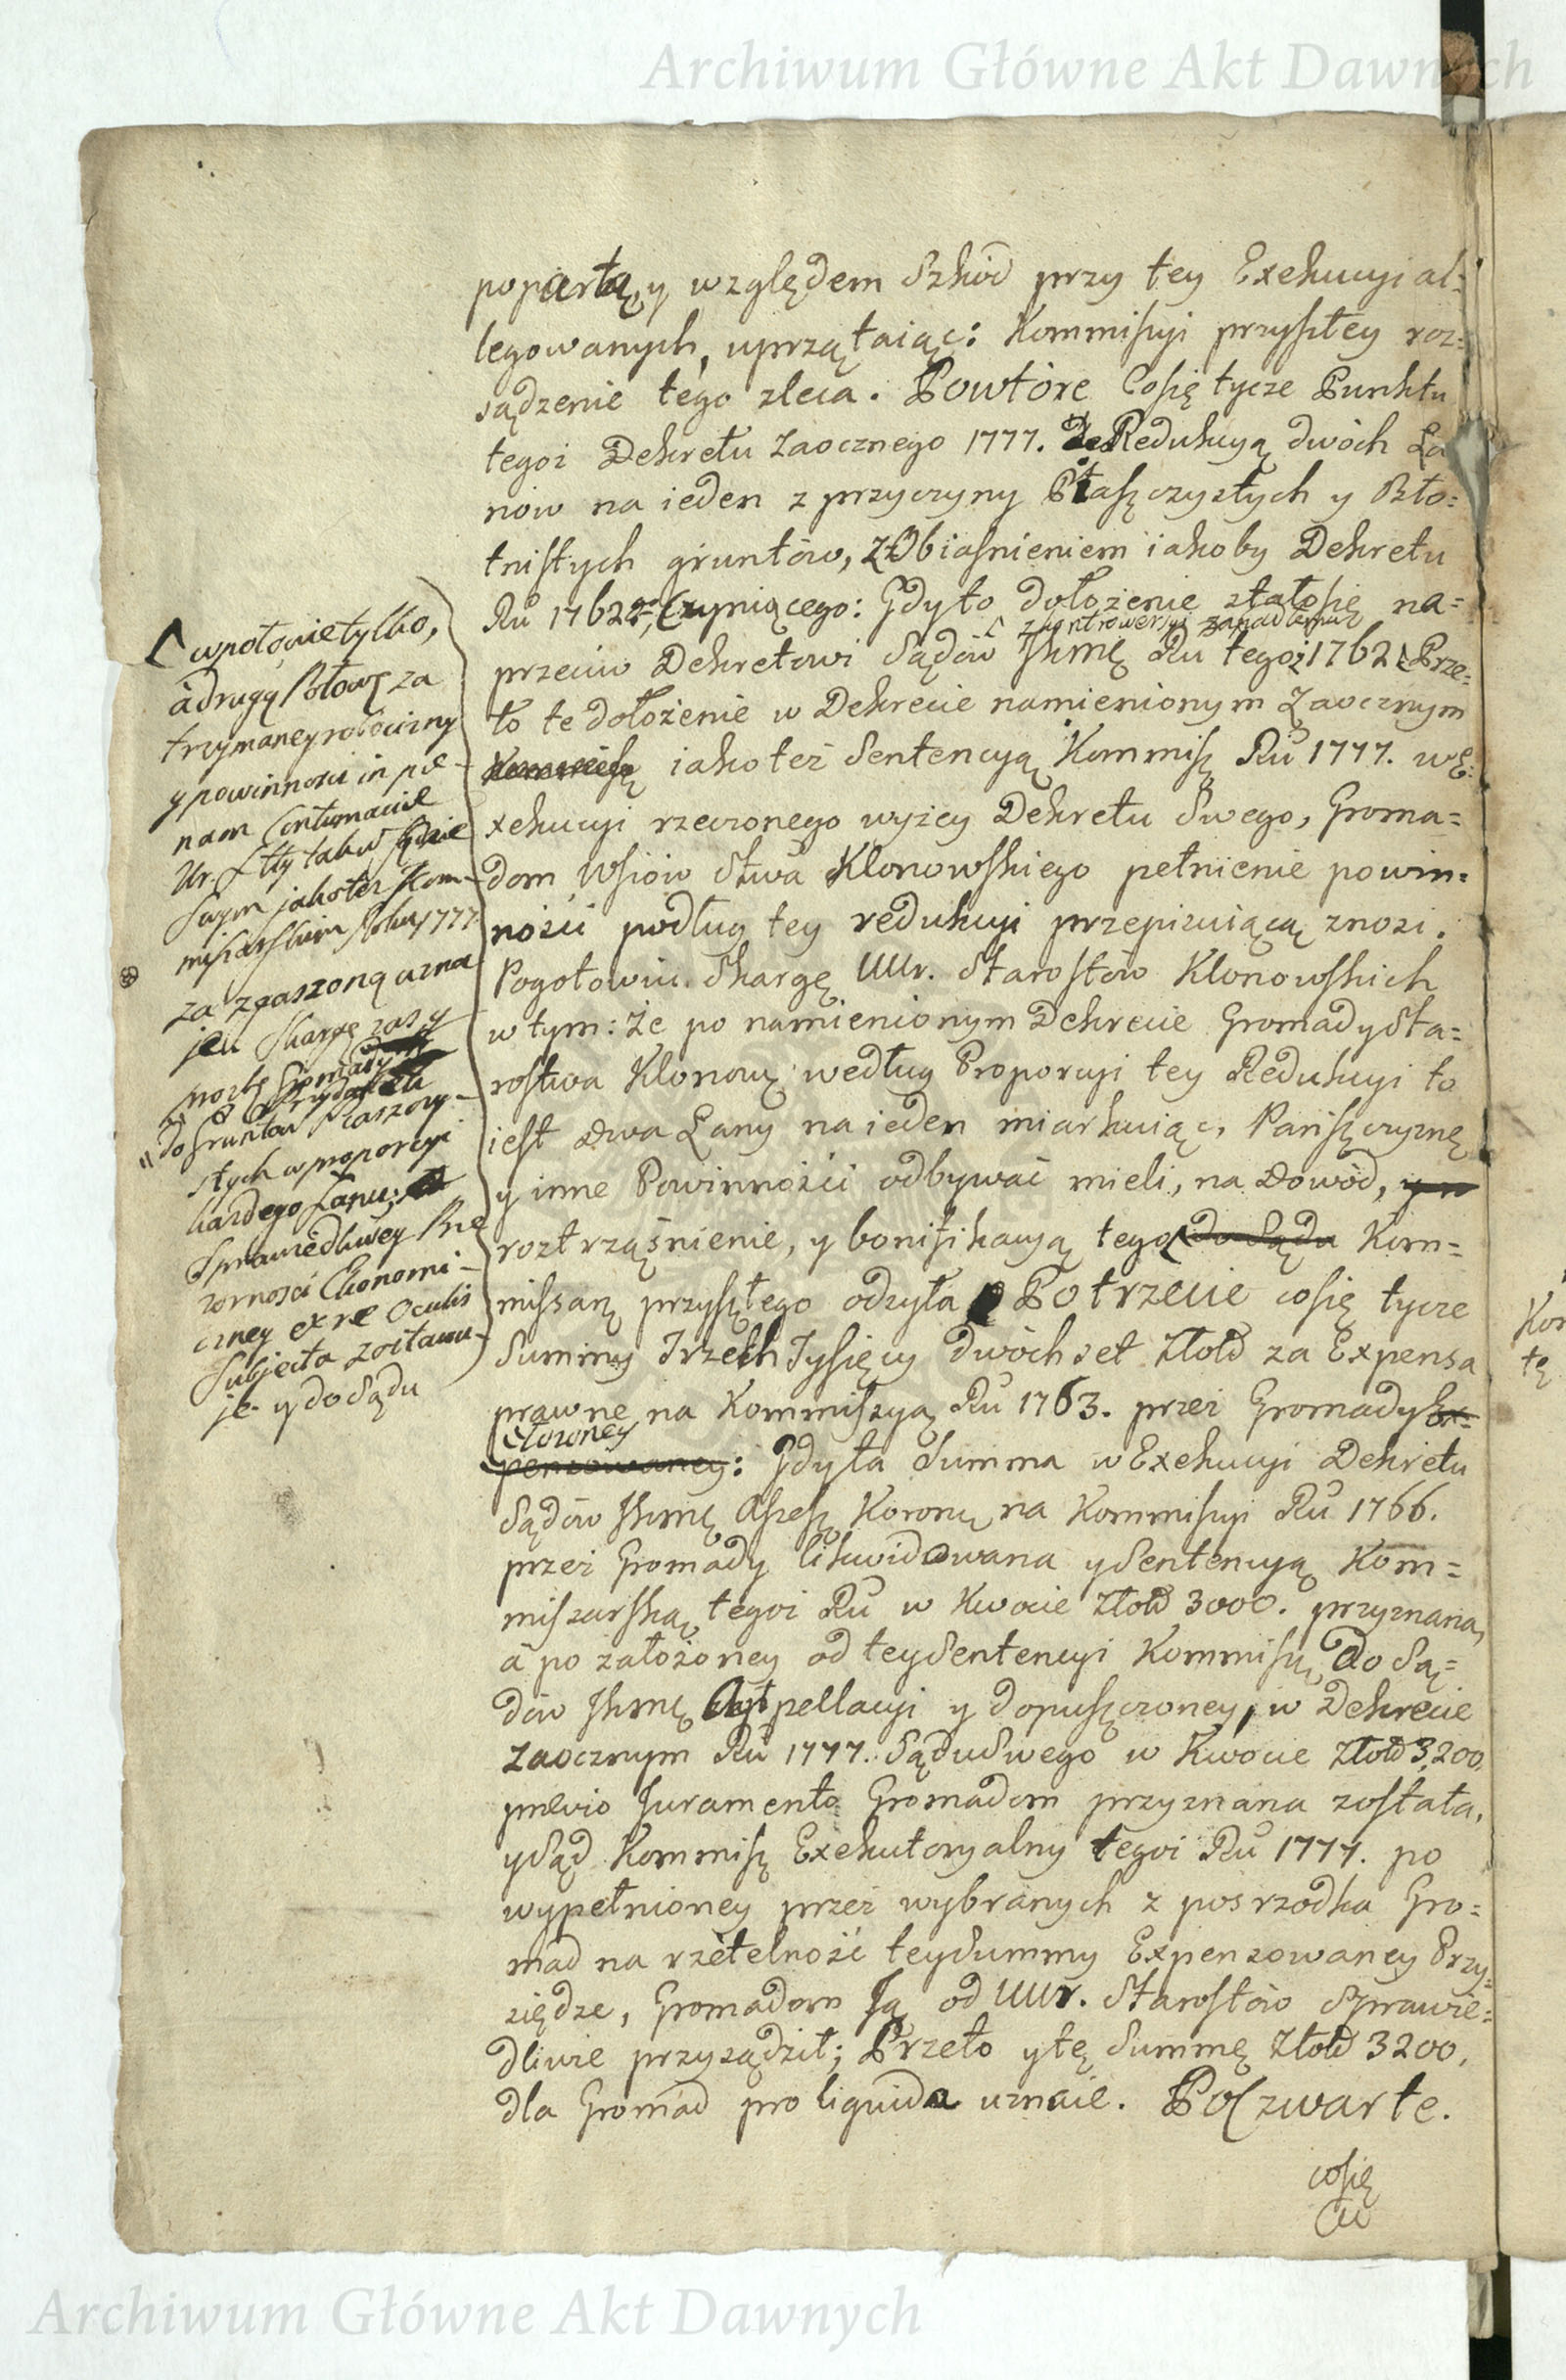 Archiwum Główne Akt Dawnych
popartą, y względem Szkód przy tey Exekucyi al=
legowanych, uprzątaiąc: Kommissyi przyszłey roz=
sądzenie tego zleca. Powtóre Co się tycze Punktu
tegoż Dekretu Zaocznego 1777. Redukcyą dwóch Ła
nów na ieden z przyczyny Piaszczystych y Bło=
tnistych gruntów, z Obiasnieniem iakoby Dekretu
Ru 1762 Czyniącego: Gdy to dołożenie stało się na=
z kontrowersyi zapadłemu
przeciw Dekretowi Sądów JKMę Ru tegoż 1762 Prze=
to te dołożenie w Dekrecie namienionym Zaocznym
iako też Sentencyą Kommisę Ru 1777. w E=
xekucyi rzeczonego wyżey Dekretu Swego, Groma=
dom Wsiów Stwa Klonowskiego pełnienie powin=
ności podług tey redukcyi przepisuiącą znosi.
Pogotowiu. Skargę UUr. Starostów Klonowskich
w tym: że po namienionym Dekrecie Gromady Sta=
rostwa Klonowę według Proporcyi tey Redukcyi to
iest dwa Łany na ieden miarkuiąc, Pańszczyznę
y inne Powinności odbywać mieli, na Dowód, y n
roztrząśnienie, y bonifikacyą tego do Sądu Kom=
missarę przyszłego odsyła Potrzecie co się tycze
Summy Trzech Tysięcy dwóch set Złotd za Expensa
prawne na Kommissyą Ru 1763. przez Gromady Ex=
łożoney
pensowaney: Gdy ta Summa w Exekucyi Dekretu
Sądów JKMę Assesę Koronę na Kommissyi Ru 1766.
przez Gromady likwidowana y Sentencyą Kom=
missarską tegoż Ru w Kwocie Złotd 3000. przyznana,
á po założoney od tey Sentencyi Kommissę do Są=
dów JKMę Appellacyi y dopuszczoney, w Dekrecie
Zaocznym Ru 1777. Sądu Swego w Kwocie Złotd 3,200.
previo Juramento Gromadom przyznana została,
y Sąd Kommisę Exekutoryalny tegoż Ru 1777. po
wypełnioney przez wybranych z posrzodka Gro=
mad na rzetelność tey Summy Expensowaney Przy=
siędze, Gromadom Ją od UUr. Starostów Sprawie=
dliwie przysądził; Przeto y tę Summę Złotd 3200.
dla Gromad pro liquida uznaie. Po Czwarte.
co się
w połowie tylko,
à drugą Połowę za
trzymaney robocizny
y powinności in pœ=
nam Contumaciæ
Ur. Ltty tak w Sądzie
Swym jako też Kom=
missarskim Roku 1777
za zgaszoną uzna
je Skargę zas y
do Gruntów Piaszczy=
stych w proporcyi
każdego Łanu,
Sprawiedliwey Prze
zorności Ekonomi=
czney ex re Oculis
Subjecta zostawu=
je y do Sądu
Kom
tę
Archiwum Główne Akt Dawnych